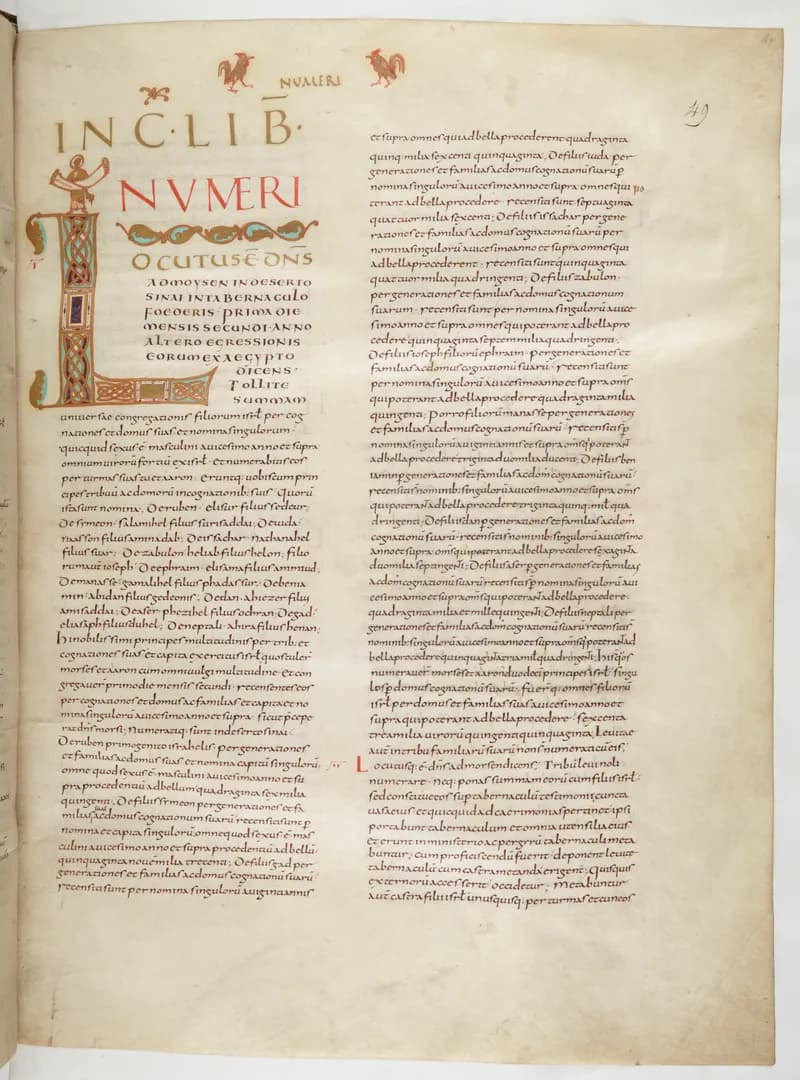 NUMERI
49
INC̄·LIB̄·
NVMERI
LOCUTUS Ē DN̄S
AD MOYSEN IN DESERTO
SINAI IN TABERNACULO
FOEDERIS· PRIMA DIE
MENSIS SECUNDI· ANNO
ALTERO EGRESSIONIS
EORUM EX AEGYPTO
DICENS·
Tollite
summam
universae congregationis filiorum isrl̄ per cog
nationes et domus suas et nomina singulorum·
quicquid sexus ē masculini a vicesimo anno et supra
omnium virorū fortiū ex isrl̄· Et numerabitis eos
per turmas suas tu et aaron· eruntq; vobiscum prin
cipes tribuū ac domorū in cognationib; suis· Quorū
ista sunt nomina· De ruben· elisur filius sedeur;
De symeon· salamihel filius surisaddai; De iuda·
naasson filius aminadab; De issachar· nathanahel
filius suar; De zabulon· heliab filius helon; filio
rum aut̄ ioseph· De ephraim· elisama filius ammiud;
De manasse· gamalihel filius phadassur; De benia
min· abidan filius gedeonis; De dan· ahiezer filius
amisaddai; De aser· phezihel filius ochran; De gad·
eliasaph filius duhel; De neptali· ahira filius henan;
Hi nobilissimi principes multitudinis per trib; et
cognationes suas et capita exercitus isrl̄ quos tuler̄
moyses et aaron cum omni vulgi multitudine· et con
gregaver̄ primo die mensis secundi· recensentes eos
per cognationes et domus ac familias et capita et no
mina singulorū a vicesimo anno et supra· sicut p̄cepe
rat dn̄s moysi; Numeratiq; sunt in deserto sinai·
De ruben primogenito israhelis· per generationes
et familias ac domus suas et nomina capitū singulorū·
omne quod sexus ē masculini a vicesimo anno et su
pra procedentiū ad bellum quadraginta sex milia
quingenti; De filiis symeon per generationes et fa
milias ac domus cognationum suarū recensiti sunt p̄
nomina et capita singulorū omne quod sexus ē mas
culini a vicesimo anno et supra procedentiū ad bellū·
quinquaginta novē milia trecenti; De filiis gad per
generationes et familias ac domus cognationū suarū·
recensiti sunt per nomina singulorū a viginti annis
et supra omnes qui ad bella procederent quadraginta
quinq; milia sexcenti quinquaginta; De filiis iuda per
generationes et familias ac domus cognationū suarū p̄
nomina singulorū a vicesimo anno et supra omnes qui po
terant ad bella procedere· recensiti sunt septuaginta
quattuor milia sexcenti; De filiis issachar per gene
rationes et familias ac domus cognationū suarū per
nomina singulorū a vicesimo anno et supra omnes qui
ad bella procederent· recensiti sunt quinquaginta
quattuor milia quadringenti; De filiis zabulon·
per generationes et familias ac domus cognationum
suarum· recensiti sunt per nomina singulorū a vice
simo anno et supra omnes qui poterant ad bella pro
cedere quinquaginta septem milia quadringenti;
De filiis ioseph filiorū ephraim· per generationes et
familias ac domus cognationū suarū· recensiti sunt
per nomina singulorū a vicesimo anno et supra om̄s
qui poterant ad bella procedere quadraginta milia
quingenti; Porro filiorū manasse per generationes
et familias ac domus cognationū suarū· recensiti s̄ p̄
nomina singulorū a viginti annis et supra om̄s q poterant
ad bella procedere triginta duo milia ducenti; De filiis ben
iamin p̄ generationes et familias ac dom̄ cognationū suarū·
recensiti sunt nominib; singulorū a vicesimo anno et supra om̄s
qui poterant ad bella procedere triginta quinq; mil̄ qua
dringenti; De filiis dan p̄ generationes et familias ac dom̄
cognationū suarū· recensiti s̄ nominib; singulorū a vicesimo
anno et supra· om̄s qui poterant ad bella procedere sexaginta
duo milia septingenti; De filiis aser p̄ generationes et familias
ac dom̄ cognationū suarū recensiti s̄ p̄ nomina singulorū a vi
cesimo anno et supra om̄s qui poterant ad bella procedere·
quadraginta milia et mille quingenti; De filiis neptali per
generationes et familias ac dom̄ cognationū suarū recensiti s̄
nominib; singulorū a vicesimo anno et supra om̄s q poterant ad
bella procedere quinquaginta tria mil̄ quadringenti; Hi s̄ q̄s
numeraver̄ moyses et aaron et duodecī principes isrl̄· singu
los p̄ domus cognationū suarū; fuer̄q; omnes filiorū
isrl̄ per domus et familias suas a vicesimo anno et
supra qui poterant ad bella procedere· sexcenta
tria milia virorū quingenti quinquaginta; Levitae
aut̄ in tribu familiarū suarū non s̄ numerati cū eis;
Locutusq; ē dn̄s ad moysen dicens; Tribū levi noli
numerare· neq; ponas summam eorū cum filiis isrl̄·
sed constitue eos sup̄ tabernaculū testimonii cuncta
vasa eius et quicquid ad caerimonias pertinet· ipsi
portabunt tabernaculum et omnia utensilia eius
et erunt in ministerio ac per gyrū tabernaculi meta
buntur; cum proficiscendū fuerit· deponent levitae
tabernaculū cum castra metanda erigent; Quisquis
externorū accesserit· occidetur; Metabuntur
aut̄ castra filii isrl̄ unusquisq; per turmas et cuneos